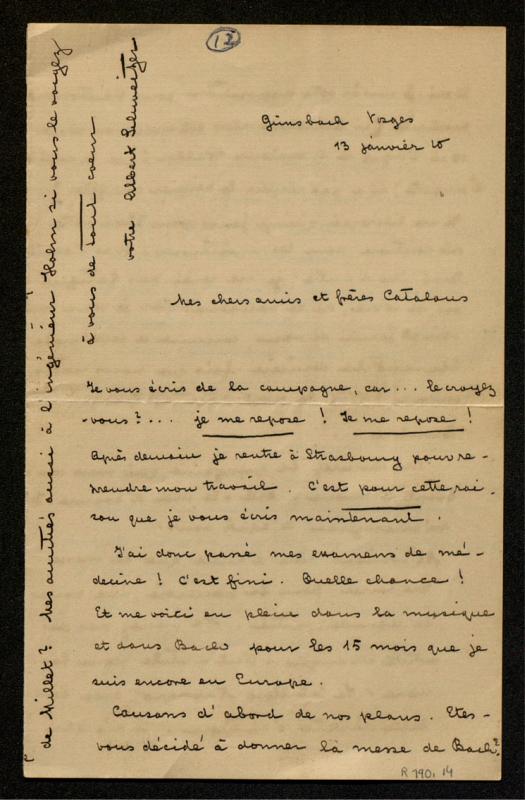 12
Günsbach Vosges
13 janvier 10
Mes chers amis et frères Catalans
Je vous écris de la campagne, car ... le croyez
-vous? ... je me repose ! Je me repose !
Après demain je rentre à Strasbourg pour re-
prendre mon travail. C'est pour cette rai-
son que je vous écris maintenant.
J'ai donc passé mes examens de mé-
decine ! C'est fini. Quelle chance !
Et me voici en plein dans la musique
et dans Bach pour les 15 mois que je
suis encore en Europe.
Causons d'abord de nos plans. Etes-
vous décidé à donner la messe de Bach?
R 790, 14
de Millet? Mes amitiés aussi à l'ingénieur Hohm si vous le voyez
à vous de tout coeur
votre Albert Schweitzer